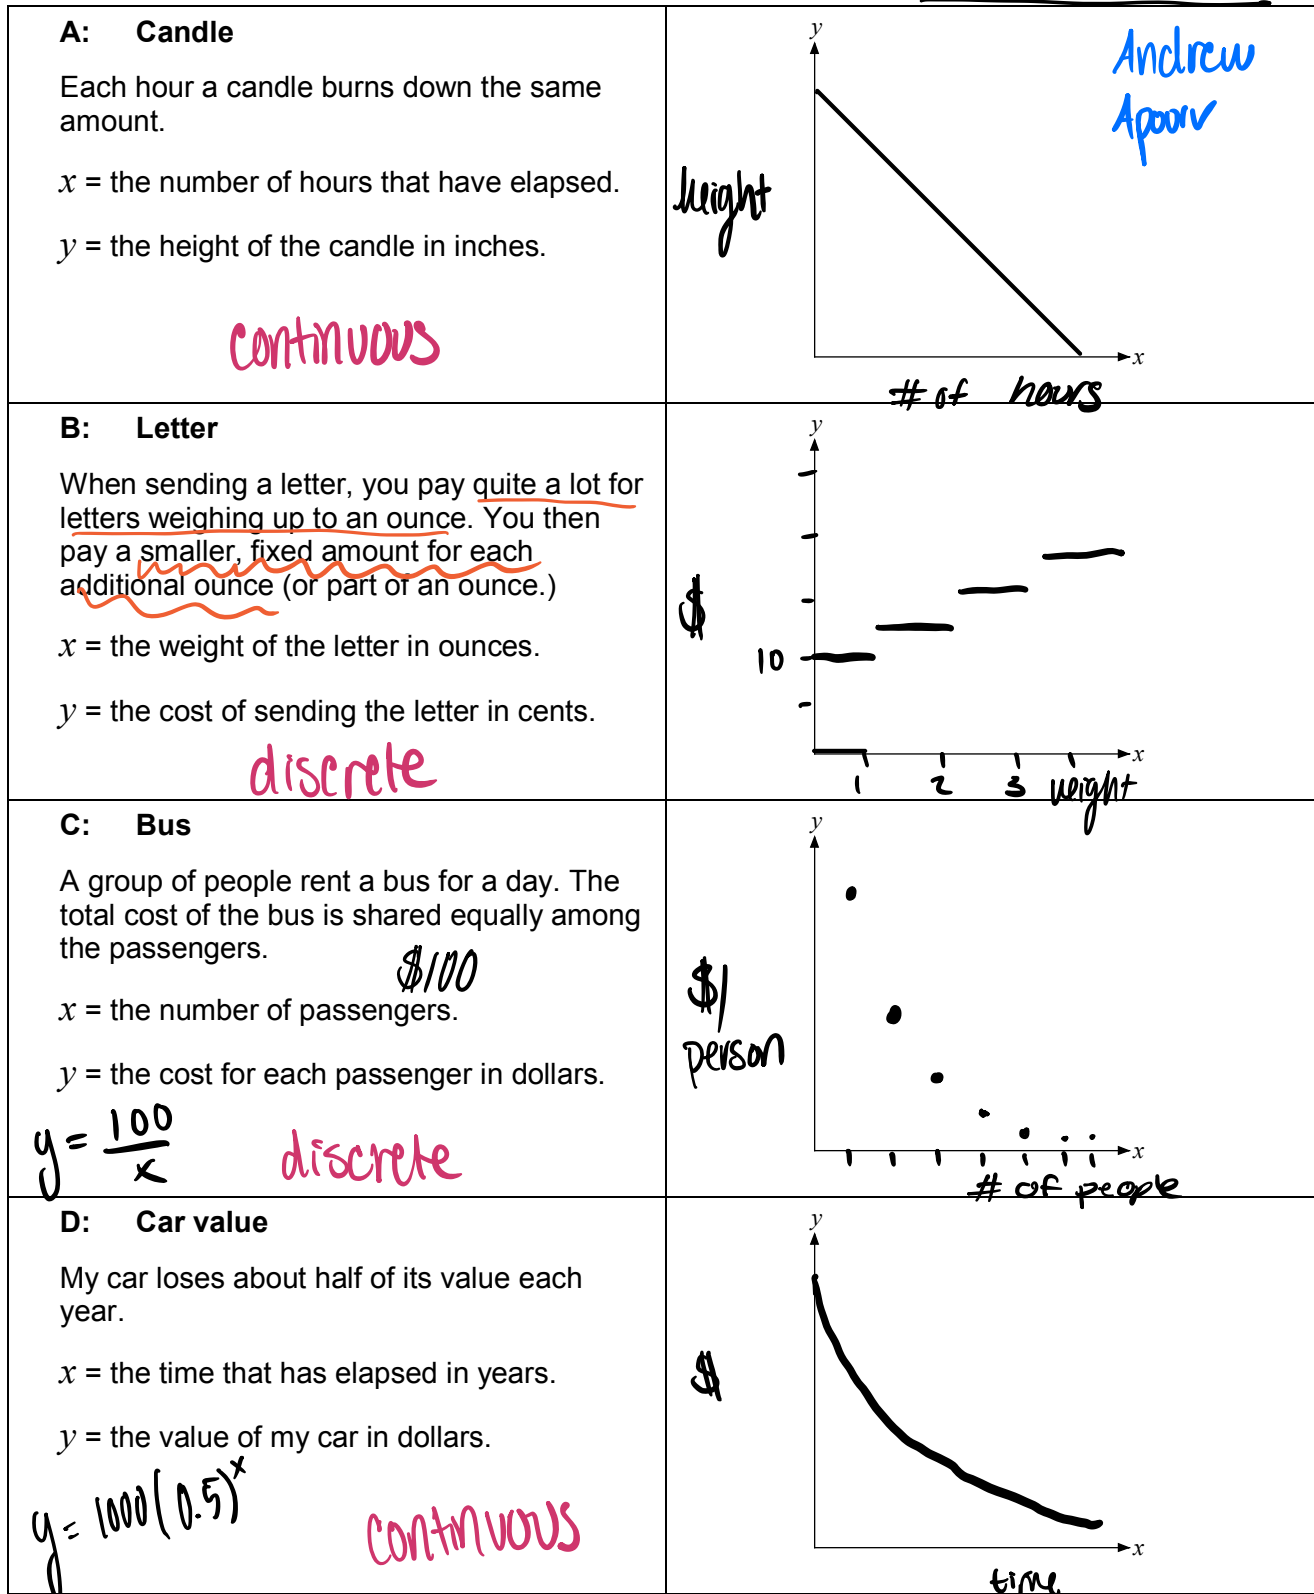 A: Candle
Each hour a candle burns down the same
amount.
x = the number of hours that have elapsed.
y = the height of the candle in inches.
continuous
y
Andrew
Apoorv
height
x
# of hours
B: Letter
When sending a letter, you pay quite a lot for
letters weighing up to an ounce. You then
pay a smaller, fixed amount for each
additional ounce (or part of an ounce.)
x = the weight of the letter in ounces.
y = the cost of sending the letter in cents.
discrete
y
$
10
x
1 2 3 weight
C: Bus
A group of people rent a bus for a day. The
total cost of the bus is shared equally among
the passengers.
$100
x = the number of passengers.
y = the cost for each passenger in dollars.
y = 100/x
discrete
y
$/
person
x
# of people
D: Car value
My car loses about half of its value each
year.
x = the time that has elapsed in years.
y = the value of my car in dollars.
y = 1000(0.5)^x
continuous
y
$
x
time